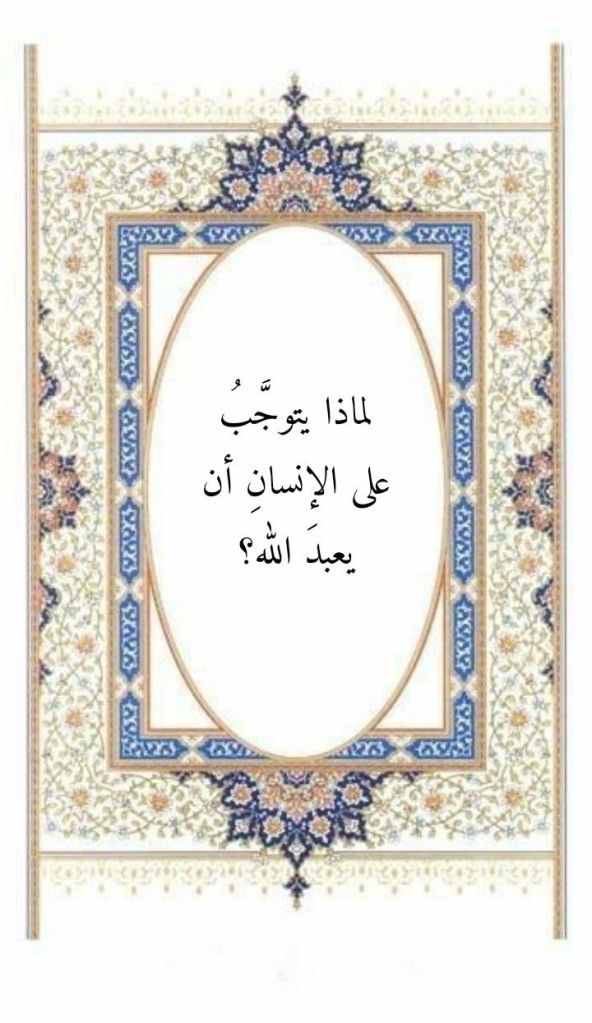 لماذا يتوجَّبُ
على الإنسانِ أن
يعبدَ الله؟